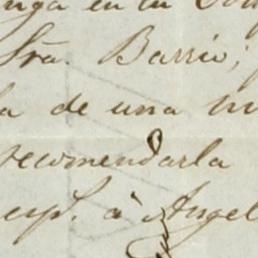 en tu
Sra. Barrio;
la de una
recomendarla
esp. à Angel